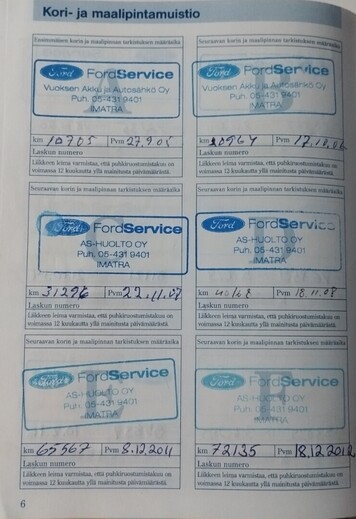 Kori- ja maalipintamuistio
Ensimmäisen korin ja maalipinnan tarkistuksen määräaika
Ford FordService
Vuoksen Akku ja Autosähkö Oy
Puh. 05-431 9401
IMATRA
km 10705 Pvm 27.9.05
Laskun numero
Liikkeen leima varmistaa, että puhkiruostumistakuu on
voimassa 12 kuukautta yllä mainitusta päivämäärästä.
Seuraavan korin ja maalipinnan tarkistuksen määräaika
Ford FordService
Vuoksen Akku ja Autosähkö Oy
Puh. 05-431 9401
IMATRA
km 20564 Pvm
Laskun numero
Liikkeen leima varmistaa, että puhkiruostumistakuu on
voimassa 12 kuukautta yllä mainitusta päivämäärästä.
Seuraavan korin ja maalipinnan tarkistuksen määräaika
Ford FordService
AS-HUOLTO OY
Puh. 05-431 9401
IMATRA
km 31296 Pvm 22.11.07
Laskun numero
Liikkeen leima varmistaa, että puhkiruostumistakuu on
voimassa 12 kuukautta yllä mainitusta päivämäärästä.
Seuraavan korin ja maalipinnan tarkistuksen määräaika
Ford FordService
AS-HUOLTO OY
Puh. 05-431 9401
IMATRA
km Pvm 18.11.08
Laskun numero
Liikkeen leima varmistaa, että puhkiruostumistakuu on
voimassa 12 kuukautta yllä mainitusta päivämäärästä.
Seuraavan korin ja maalipinnan tarkistuksen määräaika
Ford FordService
AS-HUOLTO OY
Puh. 05-431 9401
IMATRA
km 65567 Pvm 8.12.2011
Laskun numero
Liikkeen leima varmistaa, että puhkiruostumistakuu on
voimassa 12 kuukautta yllä mainitusta päivämäärästä.
Seuraavan korin ja maalipinnan tarkistuksen määräaika
Ford FordService
AS-HUOLTO OY
Puh. 05-431 9401
IMATRA
km 72135 Pvm 18.12.2012
Laskun numero
Liikkeen leima varmistaa, että puhkiruostumistakuu on
voimassa 12 kuukautta yllä mainitusta päivämäärästä.
6